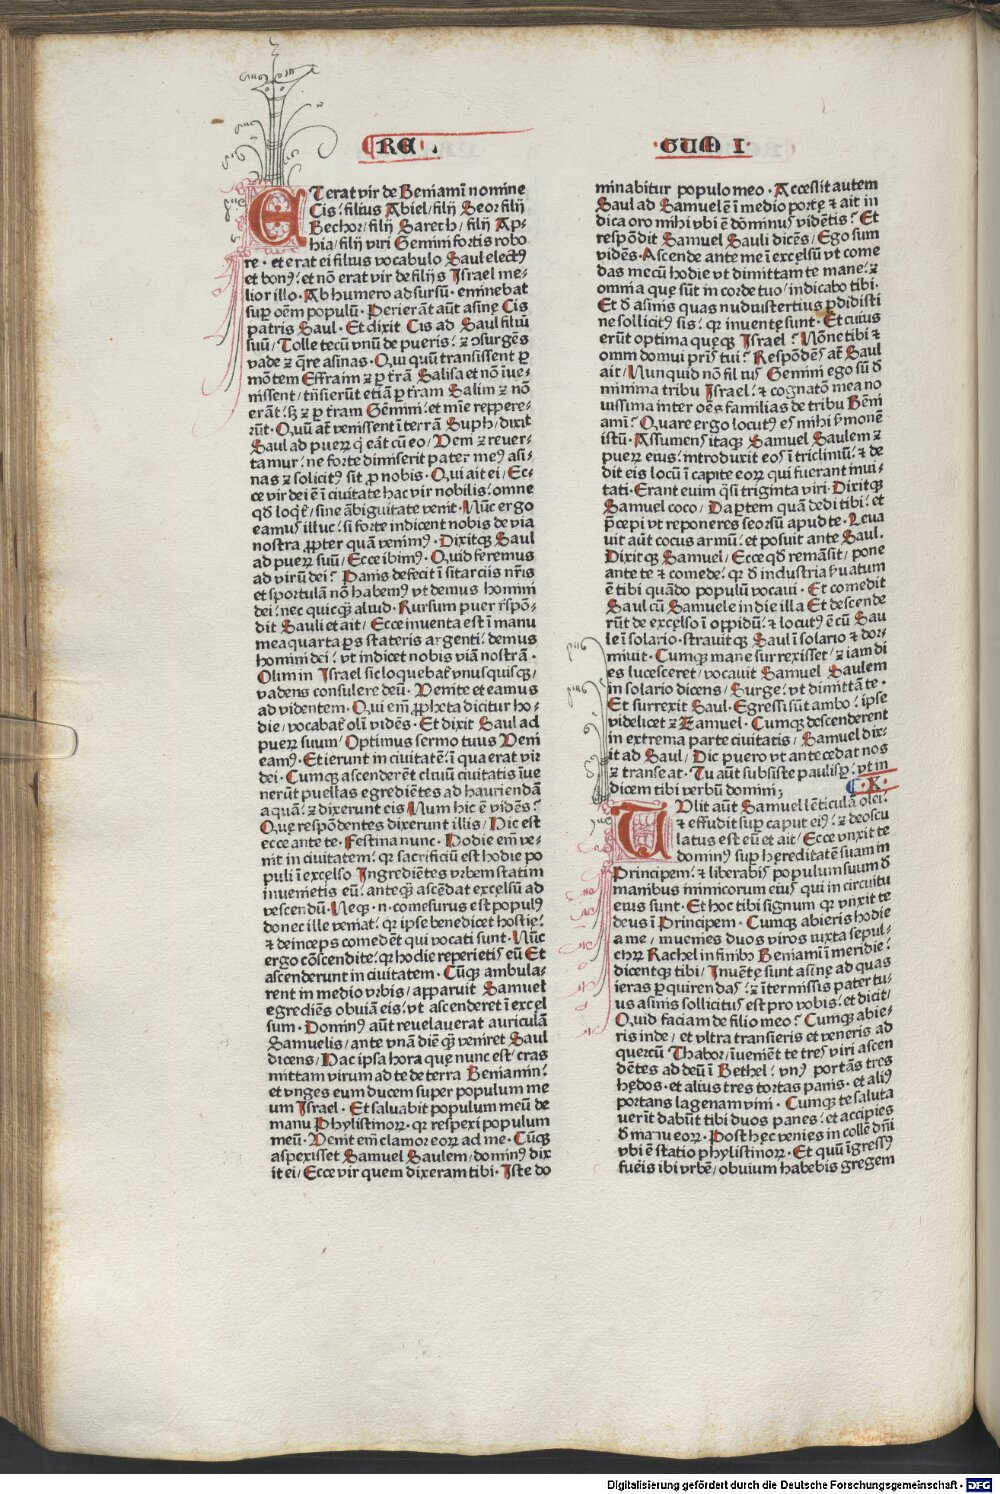 RE .
GUM I
ET erat vir de Beniamī nomine
Cis: filius Abiel/ filij Seor filij
Bechor/ filij Sarech/ filij Ap-
hia/ filij viri Gemini fortis robo
re · et erat ei filius vocabulo Saul electꝰ
et bonꝰ: et nō erat vir de filijs Israel me-
lior illo · Ab humero ad sursū · eminebat
sup̄ oēm populū · Perierāt aūt asinę Cis
patris Saul · Et dixit Cis ad Saul filiū
suū/ Tolle tecū vnū de pueris: ⁊ ↄsurgēs
vade ⁊ q̄re asinas · Qui quū transissent ꝑ
mōtem Effraim ⁊ ꝑ t̄rā Salisa et nō īue-
nissent/ trāsierūt etiā ꝑ t̄ram Salim ⁊ nō
erāt: sꝫ ⁊ ꝑ t̄ram Gēmini: et mīe reppere-
rūt · Quū aūt venissent ī terrā Suph/ dixit
Saul ad pueꝝ q̄ eāt cū eo/ Veni ⁊ reuer-
tamur: ne forte dimiserit pater meꝰ asi-
nas ⁊ solicitꝰ sit ꝓ nobis · Qui ait ei/ Ec-
ce vir dei ē ī ciuitate hac vir nobilis: omne
qđ loqt̄/ sine ābiguitate venit · Nūc ergo
eamꝰ illuc: si forte indicent nobis de via
nostra ꝓpter quā venimꝰ · Dixitqꝫ Saul
ad pueꝝ suū/ Ecce ibimꝰ · Quid feremus
ad virū dei? Panis defecit ī sitarciis nr̄is
et sportulā nō habemꝰ vt demus homini
dei: nec quicqꝫ aliud · Rursum puer r̄spō-
dit Sauli et ait/ Ecce inuenta est ī manu
mea quarta ꝑs stateris argenti: demus
homini dei: vt indicet nobis viā nostrā ·
Olim in Israel sic loquebat̄ vnusquisqꝫ
vadens consulere deū · Venite et eamus
ad videntem · Qui em̄ ꝓpheta dicitur ho-
die/ vocabat̄ olī vidēs · Et dixit Saul ad
pueꝝ suum/ Optimus sermo tuus Veni
eamꝰ · Et ierunt in ciuitatē: ī qua erat vir
dei · Cumqꝫ ascenderēt cliuū ciuitatis īue
nerūt puellas egrediētes ad hauriendā
aquā: ⁊ dixerunt eis/ Num hic ē vidēs?
Quę respōdentes dixerunt illis/ Hic est
ecce ante te · Festina nunc · Hodie em̄ ve-
nit in ciuitatem: qꝛ sacrificiū est hodie po
puli ī excelso Ingrediētes vrbem statim
inuenietis eū: anteqꝫ ascēdat excelsū ad
vescendū · Neqꝫ · n · comesurus est populꝰ
donec ille veniat: qꝛ ipse benedicet hostię:
⁊ deinceps comedēt qui vocati sunt · Nūc
ergo cōscendite: qꝛ hodie reperietis eū Et
ascenderunt in ciuitatem · Cūqꝫ ambula-
rent in medio vrbis/ apparuit Samuel
egrediēs obuiā eis: vt ascenderet ī excel
sum · Dominꝰ aūt reuelauerat auriculā
Samuelis/ ante vnā diē q̄ꝫ veniret Saul
dicens/ Hac ipsa hora quę nunc est cras
mittam virum ad te de terra Beniamin:
et vnges eum ducem super populum me
um Israel · Et saluabit populum meū de
manu Phylistinoꝝ · qꝛ respexi populum
meū · Venit em̄ clamor eoꝝ ad me · Cūqꝫ
aspexisset Samuel Saulem/ dominꝰ dix
it ei/ Ecce vir quem dixeram tibi · Iste do
minabitur populo meo · Accessit autem
Saul ad Samuelē ī medio portę ⁊ ait in
dica oro mihi vbi ē dominus videntis? Et
respōdit Samuel Sauli dicēs/ Ego sum
vidēs · Ascende ante me ī excelsū vt come
das mecū hodie vt dimittam te mane: ⁊
omnia quę sūt in corde tuo/ indicabo tibi ·
Et đ asinis quas nudiustertius ꝑdidisti
ne sollicitꝰ sis: qꝛ inuentę sunt · Et cuius
erūt optima quęqꝫ Israel? Nōne tibi ⁊
omni domui pr̄is tui? Respōdēs aūt Saul
ait/ Nunquid nō filius Gemini ego sū đ
minima tribu Israel: ⁊ cognatō mea no
uissima inter oēs familias de tribu Bēni
ami? Quare ergo locutꝰ es mihi ẜmonē
istū · Assumens itaqꝫ Samuel Saulem ⁊
pueꝝ eius: introduxit eos ī triclinium: ⁊ de
dit eis locū ī capite eoꝝ qui fuerant inui-
tati · Erant enim q̄si triginta viri · Dixitqꝫ
Samuel coco/ Da ꝑtem quā dedi tibi: et
p̄cepi vt reponeres seorsū apud te · Leua
uit aūt cocus armū: et posuit ante Saul ·
Dixitqꝫ Samuel/ Ecce qđ remāsit/ pone
ante te ⁊ comede: qꝛ đ industria ẜuatum
ē tibi quādo populū vocaui · Et comedit
Saul cū Samuele in die illa Et descende
rūt de excelso ī oppidū: ⁊ locutꝰ ē cū Sau
le ī solario · strauitqꝫ Saul ī solario ⁊ dor-
miuit · Cumqꝫ mane surrexisset/ ⁊ iam di
es lucesceret/ vocauit Samuel Saulem
in solario dicens/ Surge: vt dimittā te ·
Et surrexit Saul · Egressi sūt ambo: ipse
videlicet ⁊ Samuel · Cumqꝫ descenderent
in extrema parte ciuitatis/ Samuel dix-
it ad Saul/ Dic puero vt antecedat nos
⁊ transeat · Tu aūt subsiste paulisꝑ: vt in
dicem tibi verbū domini;
· X ·
TUlit aūt Samuel lēticulā olei:
⁊ effudit sup̄ caput eiꝰ: ⁊ deoscu
latus est eū et ait/ Ecce vnxit te
dominꝰ sup̄ hereditatē suam in
Principem: ⁊ liberabis populum suum đ
manibus inimicorum eiusꝰ qui in circuitu
eius sunt · Et hoc tibi signum qꝛ vnxit te
deus ī Principem · Cumqꝫ abieris hodie
a me/ inuenies duos viros iuxta sepul-
chꝝ Rachel in finibꝰ Beniamī ī meridie:
dicentqꝫ tibi/ Inuētę sunt asinę ad quas
ieras ꝑquirendas: ⁊ ītermissis pater tu-
us asinis sollicitus est pro vobis: et dicit/
Quid faciam de filio meo? Cumqꝫ abie-
ris inde/ et vltra transieris et veneris ad
quercū Thabor/ īueniēt te tres viri ascen
dētes ad deū ī Bethel: vnꝰ portās tres
hędos · et alius tres tortas panis · et aliꝰ
portans lagenam vini · Cumqꝫ te saluta
uerīt dabūt tibi duos panes: et accipies
đ manu eoꝝ · Post hęc venies in collē dn̄i
vbi ē statio phylistinoꝝ · Et quū īgressꝰ
fueris ibi vrbē/ obuium habebis gregem
Digitalisierung gefördert durch die Deutsche Forschungsgemeinschaft - DFG